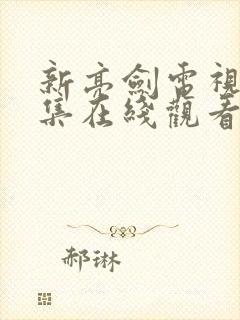 新亮劍電視
集在綫觀看
郝琳